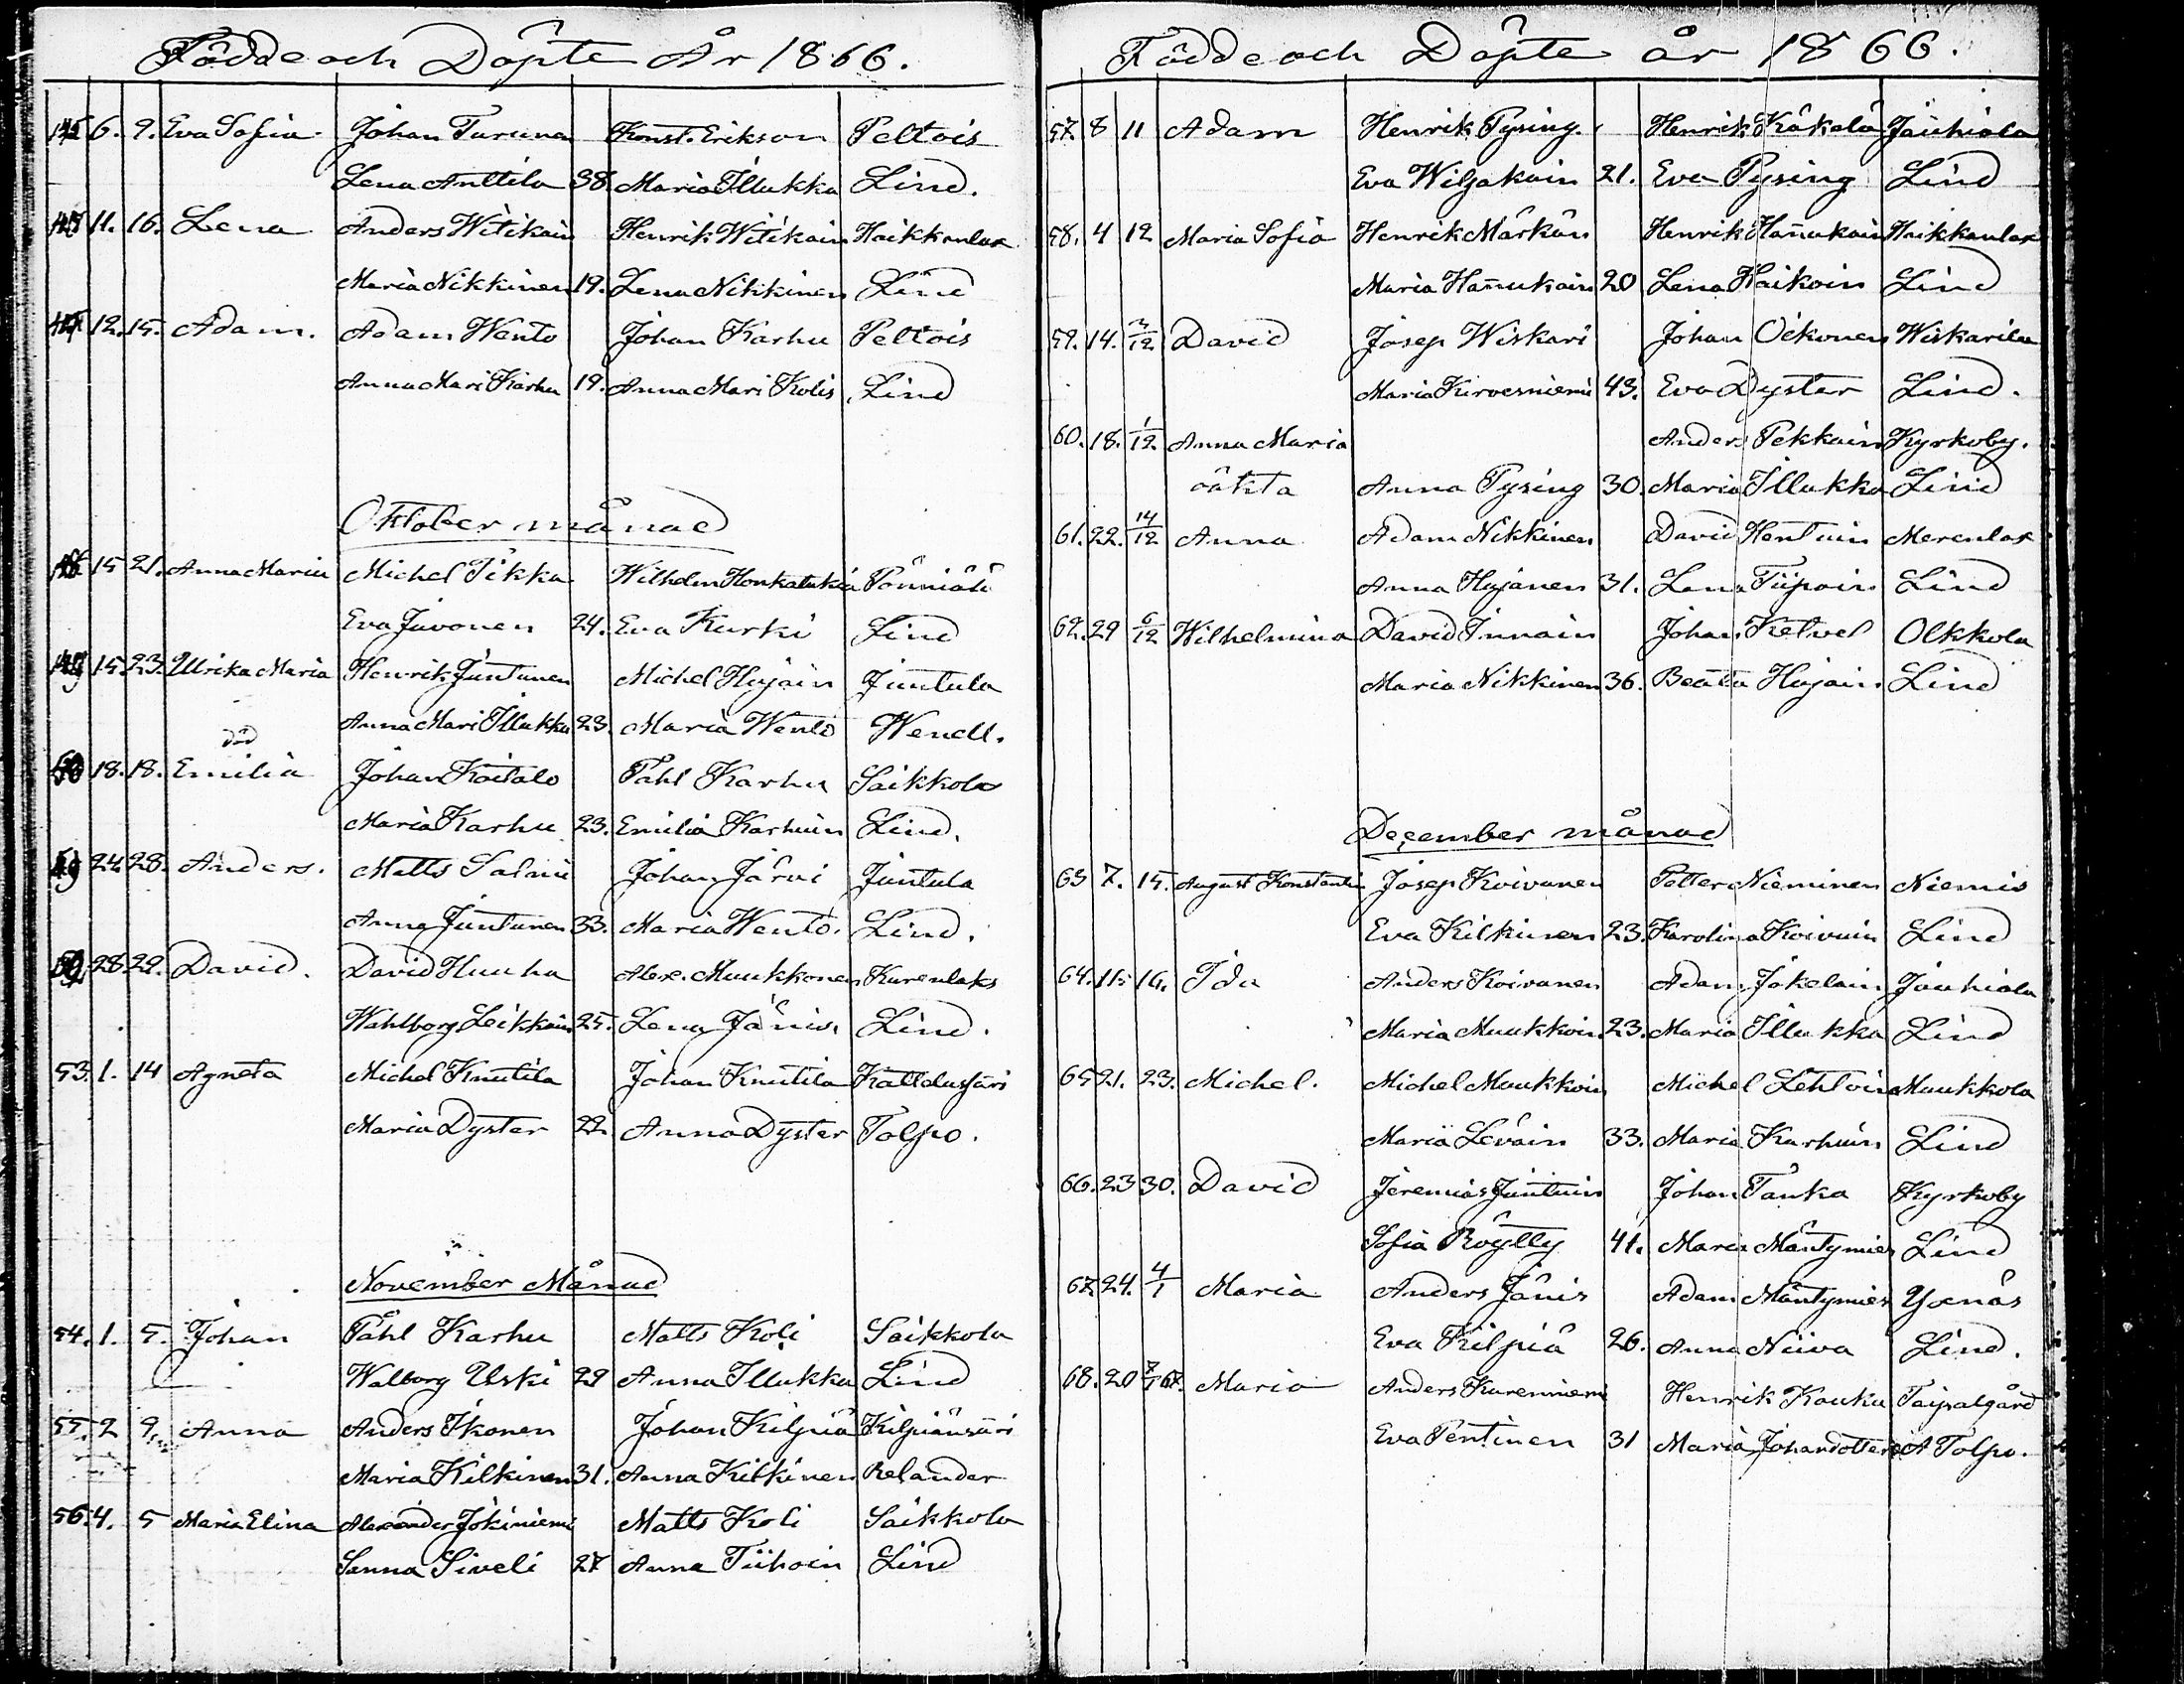 Födde och Döpte År 1866.
6. 9. Eva Sofia Johan Turunen Konst. Erikson Peltois
Lena Anttila 38. Maria Illukka Lind.
11. 16. Lena Anders Witikain Henrik Witikain Haikkanlax
Maria Nikkinen 19. Lena Nikkinen Lind
12. 15. Adam. Adam Wento Johan Karhu Peltois
Anna Mari Karhu 19. Anna Mari Kolis Lind
Oktober månad
15 21. Anna Maria Michel Tikka Wilhelm Honkatukia
Eva Juvonen 24. Eva Kurki Lind
15. 23. Ulrika Maria Henrik Juntunen Michel Hujain Juntula
Anna Mari Illukka 23. Maria Wento Wendl.
död
50 18. 18. Emilia Johan Koitalo Påhl Karhu Saikkola
Maria Karhu 23. Emilia Karhuin Lind.
24. 28. Anders. Matts Salmi Johan Järvi Juntula
Anna Juntunen 33. Maria Wento. Lind.
28. 29. David. David Huuha Alex. Muukkonen Kurenlaks
Wahlborg Leikkain 25. Lena Jänis. Lind.
53. 1. 14 Agneta Michel Knutila Johan Knutila Kattelusjäri
Maria Dyster 22 Anna Dyster Tolpo.
November Månad
54. 1. 5. Johan Påhl Karhu Matts Koli Saikkola
Walborg Uski 29 Anna Illukka Lind
55. 2 9. Anna Anders Ikonen Johan Kilpiä Kilpiänsäri
Maria Kilkinen 31. Anna Kilkinen Relander
56. 4. 5 Maria Elina Alexander Jokiniemi Matts Koli Saikkola
Sanna Siveli 27 Anna Tiihoin Lind
Födde och Döpte år 1866.
57. 8 11 Adam Henrik Pysing. Henrik Käkelä Jauhiala
Eva Wiljakain 21. Eva Pysing Lind
58. 4 12 Maria Sofia Henrik Märkän Henrik Hañukain Haikkanlax
Maria Hañukain 20 Lena Haikoin Lind
59. 14. 3/12 David Josep Wiskari Johan Oikonen Wiskarila
Maria Kirvesniemi 43. Eva Dyster Lind.
60. 18. 1/12 Anna Maria Anders Pekkain Kyrkoby.
oäkta Anna Pysing 30. Maria Illukka Lind
61. 22. 14/12 Anna Adam Nikkinen David Hentuin Merenlax
Anna Hujanen 31. Lena Tiipoin Lind
62. 29 6/12 Wilhelmina David Innain Johan Ketvel Olkkola
Maria Nikkinen 36. Beata Hujain Lind
December månad
63 7. 15. August Konstantin Josep Koivunen Petter Nieminen Niemis
Eva Kilkinen 23. Karolina Koivuin Lind
64. 15 16. Ida Anders Koivunen Adam Jokelain Jauhiala
Maria Muukkoin. 23. Maria Illukka Lind
65 21. 23. Michel. Michel Muukkoin Michel Lehtoin Muukkola
Maria Leväin 33. Maria Karhuin Lind
66. 23 30. David Jeremias Juntuin Johan Tanka Kyrkoby
Sofia Röytty 41. Maria Mäntymies Lind
67. 24. 4/1 Maria Anders Jänis Adam Mäntymies Yxnäs
Eva Kilpiä 26. Anna Niiva Lind.
68. 20 7/1 67. Maria Anders Kureniemi Henrik Kouku Taipalgård
Eva Pentinen 31 Maria Johandotter A Tolpo.